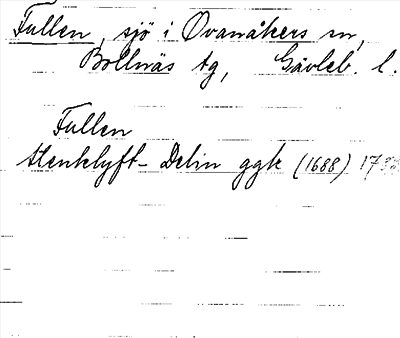 Fullen, sjö i Ovanåkers sn,
Bollnäs tg, Gävleb. l.
Fullen
Stenklyft-Delin ggk (1688)